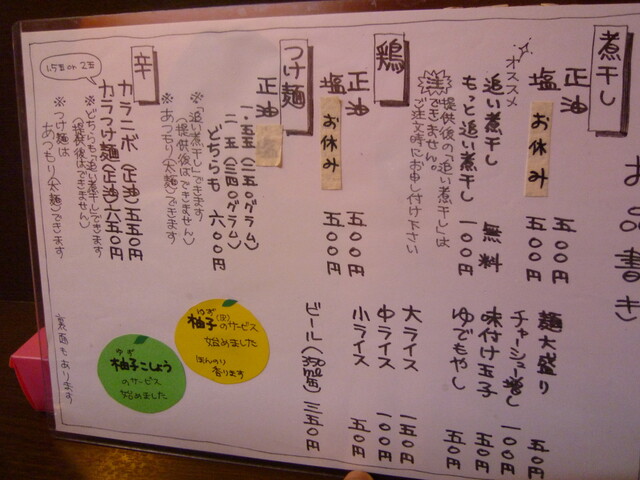 お品書き
煮干し
正油 五〇〇円
塩 お休み 五〇〇円
オススメ
追い煮干し 無料
もっと追い煮干し 一〇〇円
提供後の「追い煮干し」は
できません。
ご注文時にお申し付け下さい
鶏
正油 五〇〇円
塩 お休み 五〇〇円
つけ麺
正油
一.五玉(二五〇グラム)
二玉(三四〇グラム)
どちらも 六〇〇円
※「追い煮干」できます
(提供後はできません)
※あつもり(太麺)できます
辛
1.5玉 or 2玉
カラニボ(正油)五五〇円
カラつけ麺(正油)六五〇円
※どちらも「追い煮干」できます
(提供後はできません)
※つけ麺は
あつもり(太麺)できます
麺大盛り 五〇円
チャーシュー増し 一〇〇円
味付け玉子 五〇円
ゆでもやし 五〇円
大ライス 一五〇円
中ライス 一〇〇円
小ライス 五〇円
ビール 三五〇円
ゆず
柚子(皮)のサービス
始めました
ほんのり
香ります
ゆず
柚子こしょう
のサービス
始めました
裏面もあります